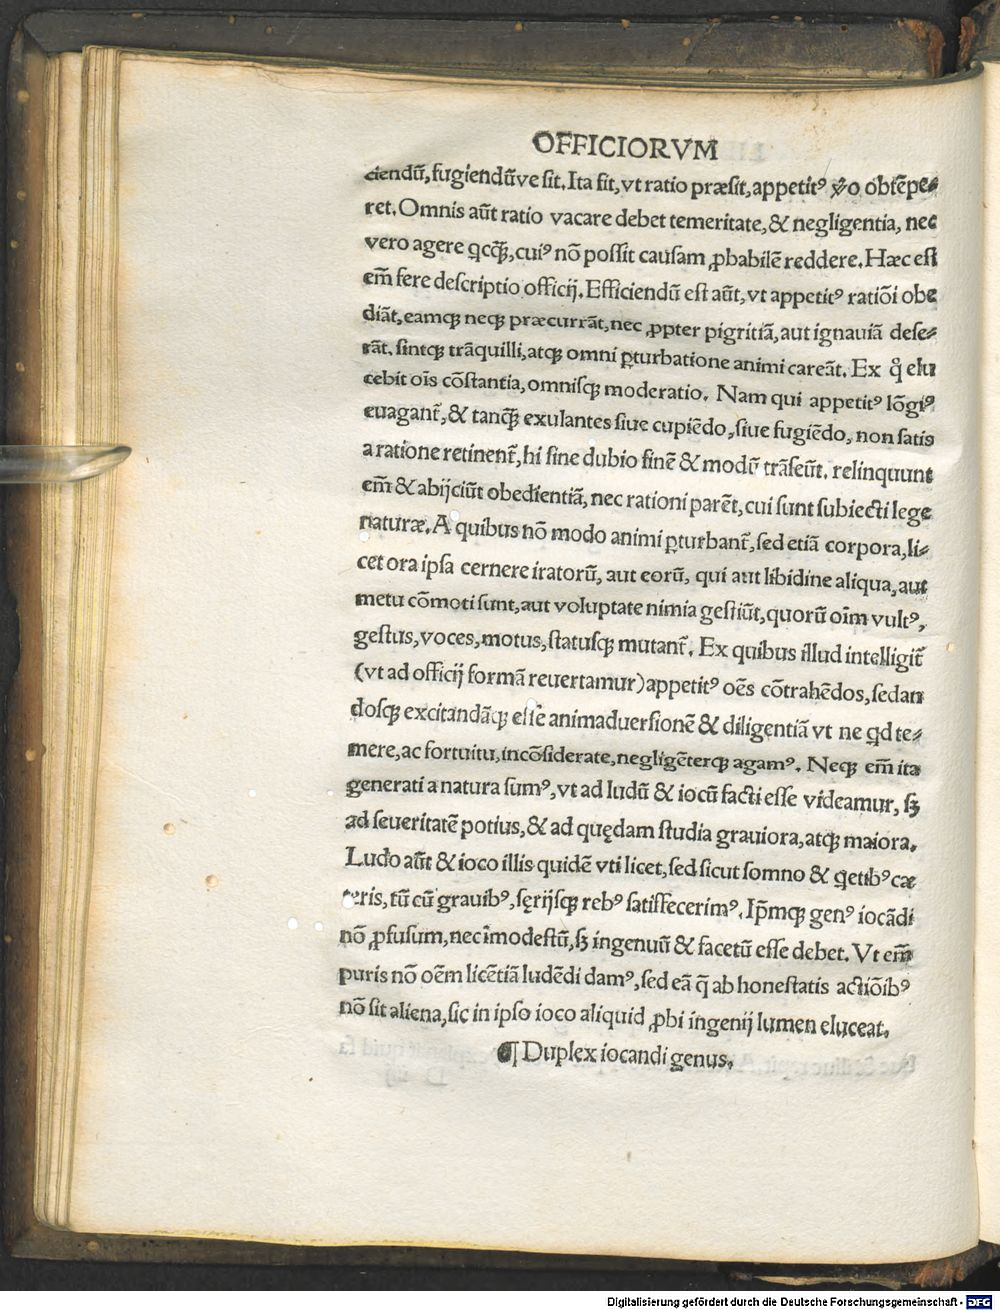 OFFICIORVM
ciendū, fugiendūve sit. Ita fit, vt ratio præsit, appetitꝰ v̄o obtēpe⸗
ret. Omnis aūt ratio vacare debet temeritate, & negligentia, nec
vero agere qcq̄̃, cuiꝰ nō possit causam ꝓbabilē reddere. Hæc est
em̄ fere descriptio officij. Efficiendū est aūt, vt appetitꝰ ratiōi obe
diāt, eamqꝫ neqꝫ præcurrāt, nec ꝓpter pigritiā, aut ignauiā dese⸗
rāt. sintqꝫ trāquilli, atqꝫ omni ꝑturbatione animi careāt. Ex q̊ elu
cebit oīs cōstantia, omnisqꝫ moderatio. Nam qui appetitꝰ lōgiꝰ
euagant᷑, & tanq̄̃ exulantes siue cupiēdo, siue fugiēdo, non satis
a ratione retinent᷑, hi sine dubio finē & modū trāseūt. relinquunt
em̄ & abijciūt obedientiā, nec rationi parēt, cui sunt subiecti lege
naturæ. A quibus nō modo animi ꝑturbant᷑, sed etiā corpora, li⸗
cet ora ipsa cernere iratorū, aut eorū, qui aut libidine aliqua, aut
metu cōmoti sunt, aut voluptate nimia gestiūt, quorū oīm vultꝰ,
gestus, voces, motus, statusqꝫ mutant᷑. Ex quibus illud intelligit᷑
(vt ad officij formā reuertamur) appetitꝰ oēs cōtrahēdos, sedan
dosqꝫ excitandāqꝫ esse animaduersionē & diligentiā vt ne qd te⸗
mere, ac fortuitu, incōsiderate, negligēterqꝫ agamꝰ. Neqꝫ em̄ ita
generati a natura sumꝰ, vt ad ludū & iocū facti esse videamur, sꝫ
ad seueritatē potius, & ad quędam studia grauiora, atqꝫ maiora.
Ludo aūt & ioco illis quidē vti licet, sed sicut somno & q̇etibꝰ cæ
teris, tū cū grauibꝰ, sęrijsqꝫ rebꝰ satisfecerimꝰ. Ip̄mqꝫ genꝰ iocādi
nō ꝓfusum, nec īmodestū, sꝫ ingenuū & facetū esse debet. Vt em̄
puris nō oēm licētiā ludēdi damꝰ, sed eā q̄ ab honestatis actiōibꝰ
nō sit aliena, sic in ipso ioco aliquid ꝓbi ingenij lumen eluceat.
¶ Duplex iocandi genus.
Digitalisierung gefördert durch die Deutsche Forschungsgemeinschaft - DFG